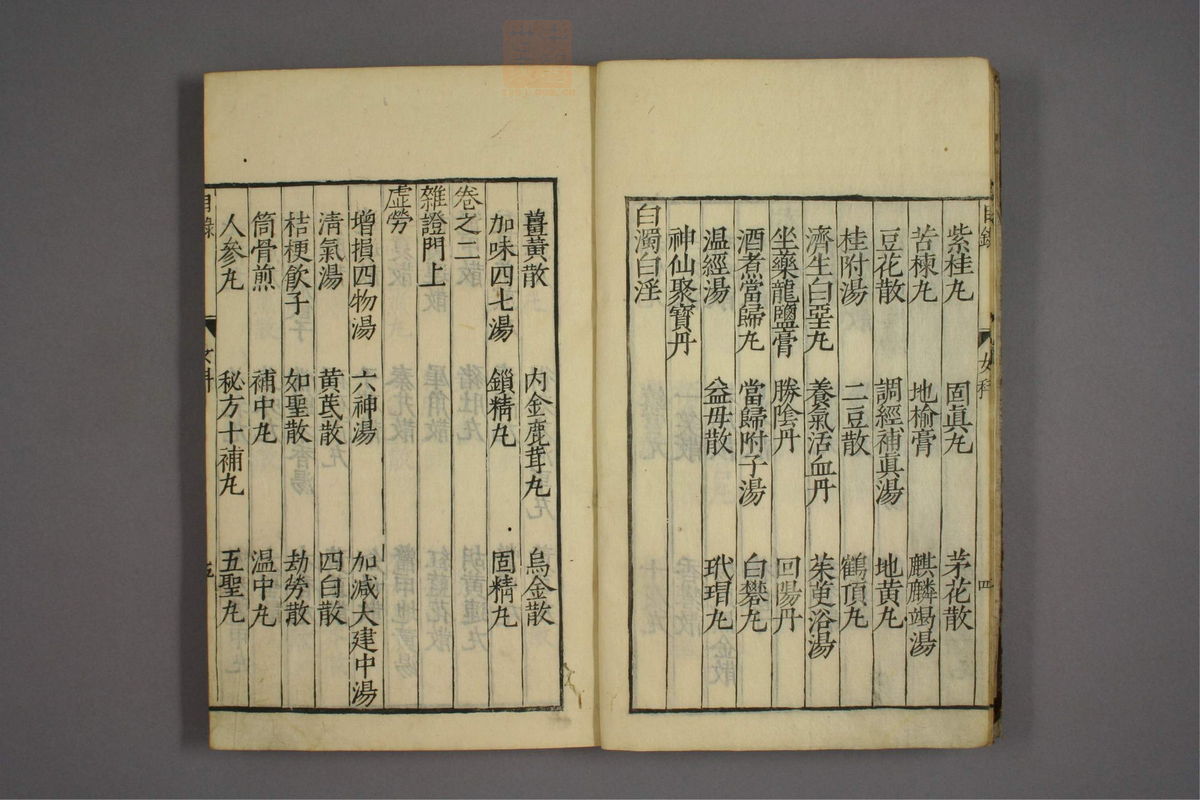 目錄 女科 四
紫桂丸 固眞丸 茅花散
苦楝丸 地榆膏 麒麟竭湯
豆花散 調經補眞湯 地黄丸
桂附湯 二豆散 鶴頂丸
濟生白堊丸 養氣活血丹 茱萸浴湯
坐藥龍鹽膏 勝陰丹 回陽丹
酒煮當歸丸 當歸附子湯 白礬丸
温經湯 益母散 玳瑁丸
神仙聚寶丹
白濁白淫
薑黄散 内金鹿茸丸 烏金散
加味四七湯 鎖精丸 固精丸
卷之二
雜證門上
虛勞
增損四物湯 六神湯 加減大建中湯
淸氣湯 黄芪散 四白散
桔梗飲子 如聖散 劫勞散
筒骨煎 補中丸 温中丸
人參丸 秘方十補丸 五聖丸
目錄 女科 五